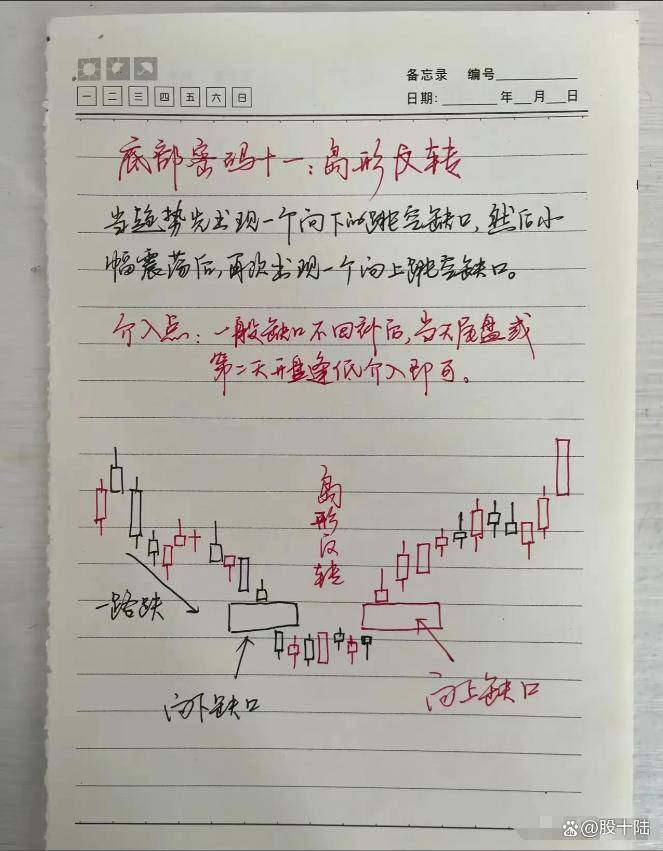 备忘录 编号
一 二 三 四 五 六 日
日期: 年 月 日
底部密码十一:岛形反转
当趋势先出现一个向下的跳空缺口,然后小
幅震荡后,再次出现一个向上跳空缺口。
介入点:一般缺口不回补后,当天尾盘或
第二天开盘逢低介入即可。
岛形反转
一路跌
向下缺口
向上缺口
@股十陆